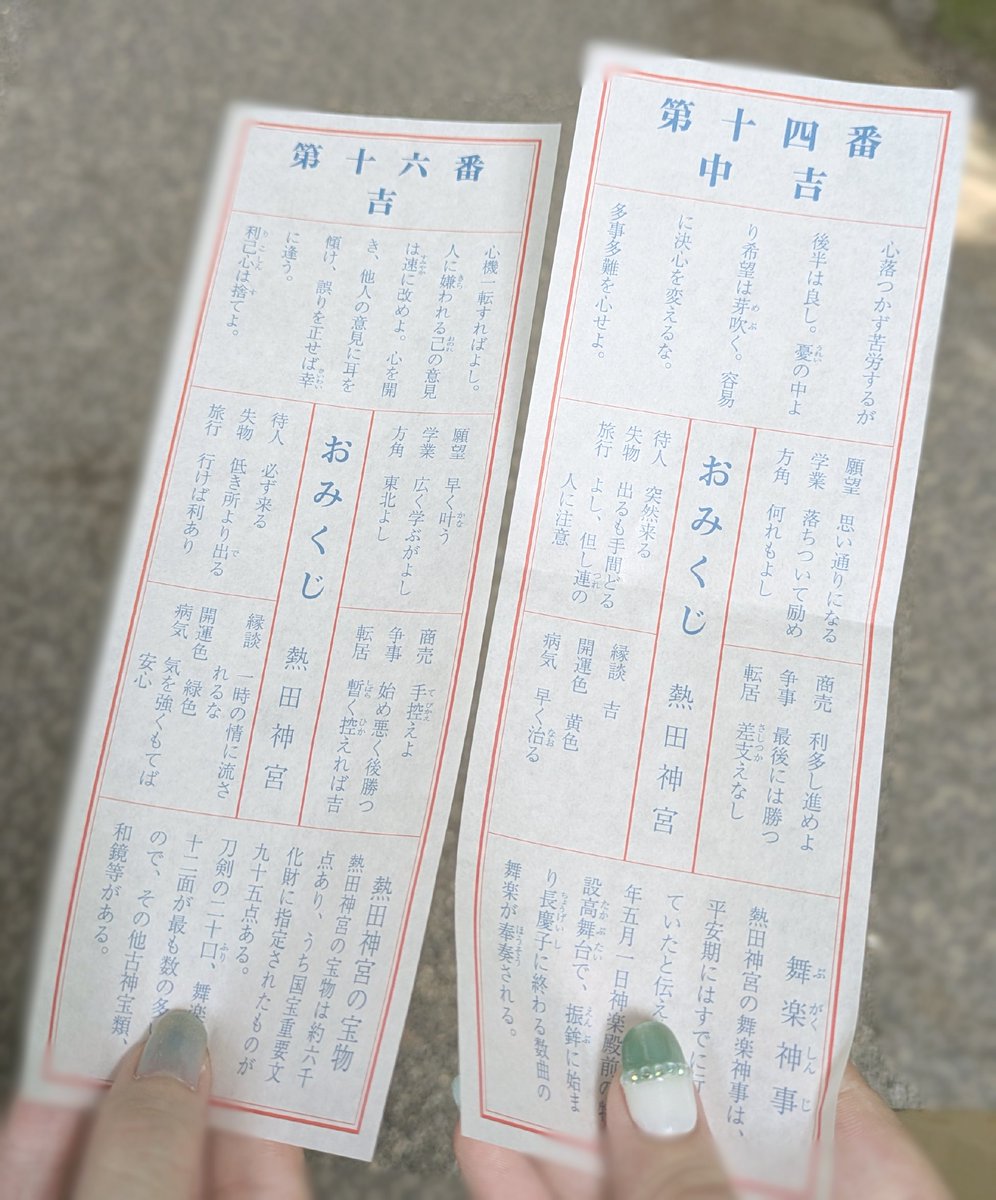 第十六番
吉
心機一転すればよし。
人に嫌われる己の意見
は速に改めよ。心を開
き、他人の意見に耳を
傾け、誤りを正せば幸
に逢う。
利己心は捨てよ。
願望 早く叶う
学業 広く学ぶがよし
方角 東北よし
おみくじ 熱田神宮
待人 必ず来る
失物 低き所より出る
旅行 行けば利あり
商売 手控えよ
争事 始め悪く後勝つ
転居 暫く控えれば吉
縁談 一時の情に流さ
れるな
開運色 緑色
病気 気を強くもてば
安心
熱田神宮の宝物
熱田神宮の宝物は約六千
点あり、うち国宝重要文
化財に指定されたものが
九十五点ある。
刀剣の二十口、舞楽
十二面が最も数の多い
ので、その他古神宝類、
和鏡等がある。
第十四番
中吉
心落つかず苦労するが
後半は良し。憂の中よ
り希望は芽吹く。容易
に決心を変えるな。
多事多難を心せよ。
願望 思い通りになる
学業 落ちついて励め
方角 何れもよし
おみくじ 熱田神宮
待人 突然来る
失物 出るも手間どる
旅行 よし、但し連の
人に注意
商売 利多し進めよ
争事 最後には勝つ
転居 差支えなし
縁談 吉
開運色 黄色
病気 早く治る
舞楽神事
熱田神宮の舞楽神事は、
平安期にはすでに
ていたと伝え
年五月一日神楽殿前の
設高舞台で、振鉾に始ま
り長慶子に終わる数曲の
舞楽が奉奏される。